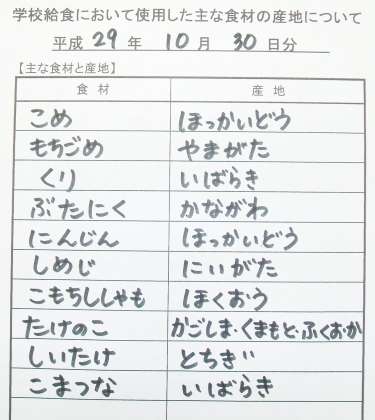 学校給食において使用した主な食材の産地について
平成 29 年 10 月 30 日分
【主な食材と産地】
食材 産地
こめ ほっかいどう
もちごめ やまがた
くり いばらき
ぶたにく かながわ
にんじん ほっかいどう
しめじ にいがた
こもちししゃも ほくおう
たけのこ かごしま・くまもと・ふくおか
しいたけ とちぎ
こまつな いばらき